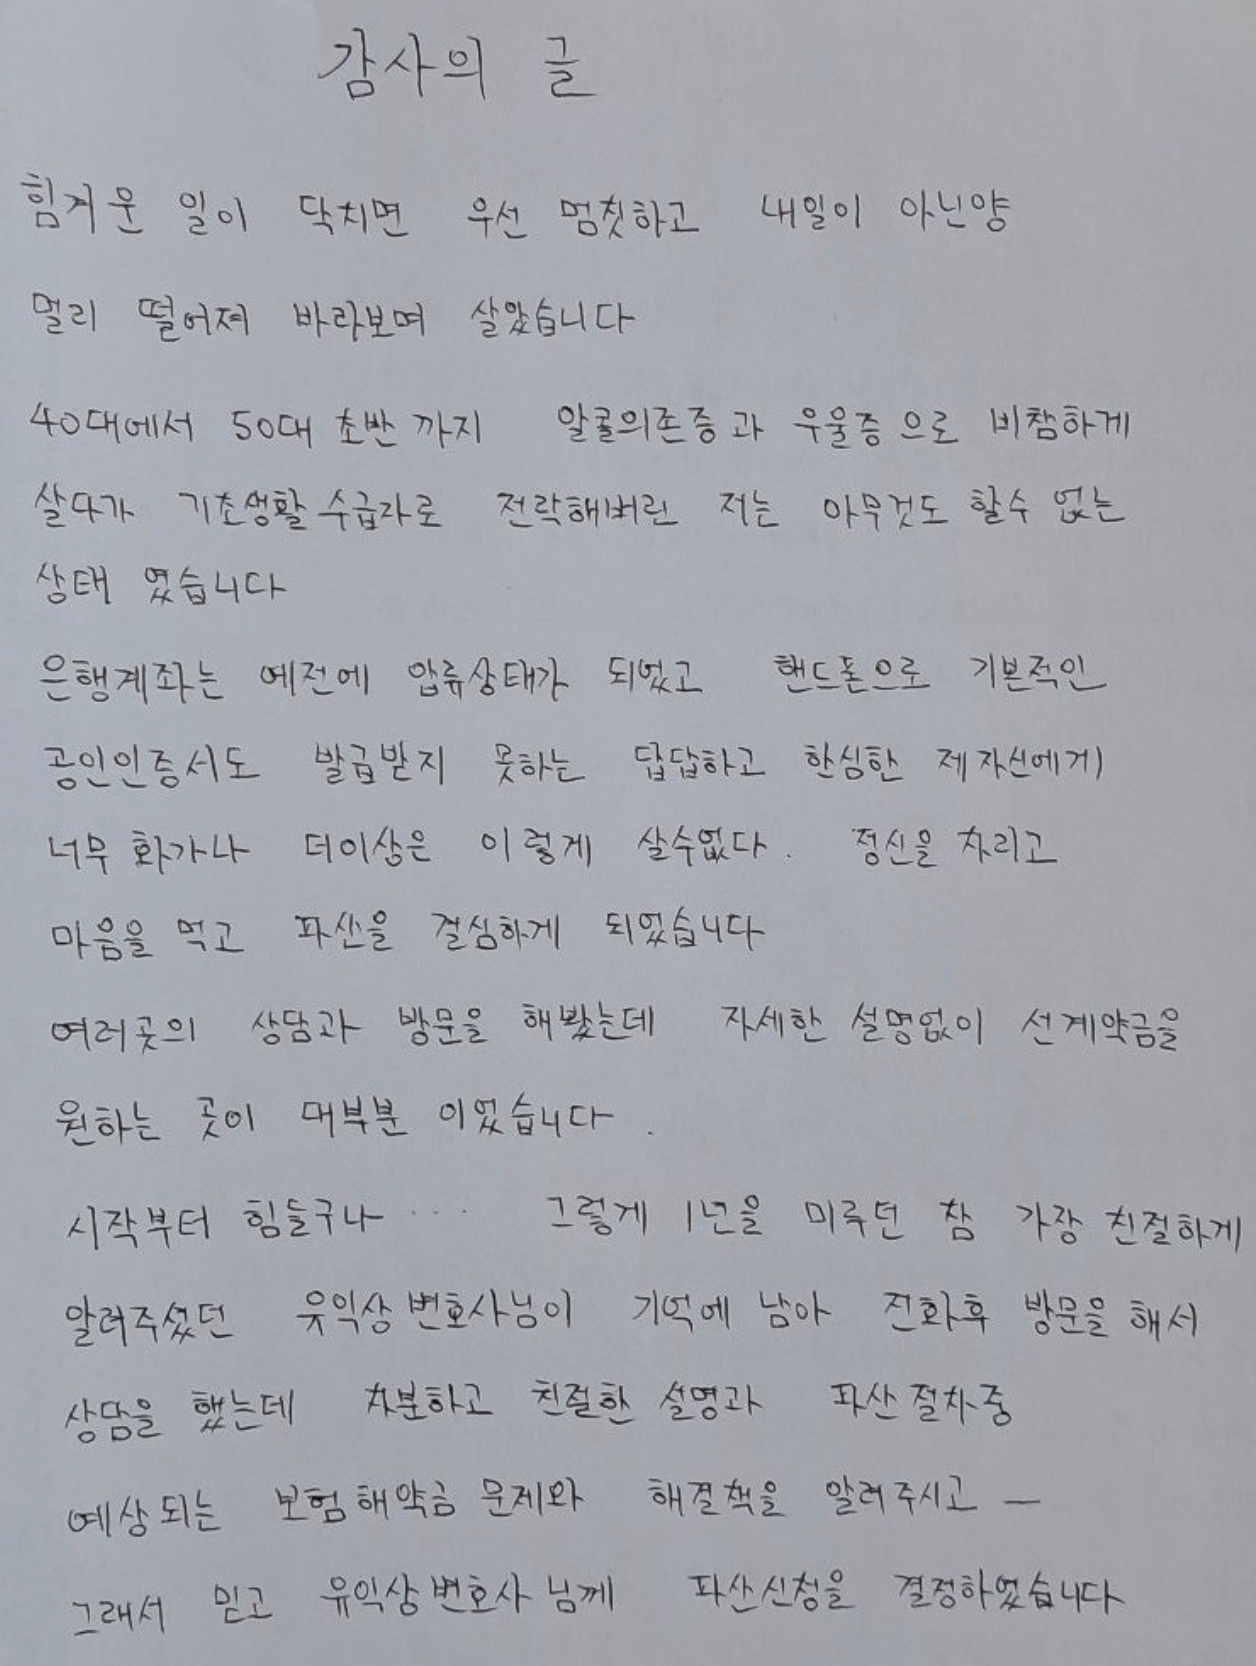 감사의 글
힘겨운 일이 닥치면 우선 멈칫하고 내일이 아닌양
멀리 떨어져 바라보며 살았습니다
40대에서 50대 초반 까지 알콜의존증과 우울증 으로 비참하게
살다가 기초생활 수급자로 전락해버린 저는 아무것도 할수 없는
상태 였습니다
은행계좌는 예전에 압류상태가 되었고 핸드폰으로 기본적인
공인인증서도 발급받지 못하는 답답하고 한심한 제 자신에게
너무 화가나 더이상은 이렇게 살수없다. 정신을 차리고
마음을 먹고 파산을 결심하게 되었습니다
여러곳의 상담과 방문을 해봤는데 자세한 설명없이 선계약금을
원하는 곳이 대부분 이었습니다.
시작부터 힘들구나 ···· 그렇게 1년을 미루던 참 가장 친절하게
알려주셨던 유익상 변호사님이 기억에 남아 전화후 방문을 해서
상담을 했는데 차분하고 친절한 설명과 파산 절차중
예상되는 보험해약금 문제와 해결책을 알려주시고 —
그래서 믿고 유익상 변호사 님께 파산신청을 결정하였습니다